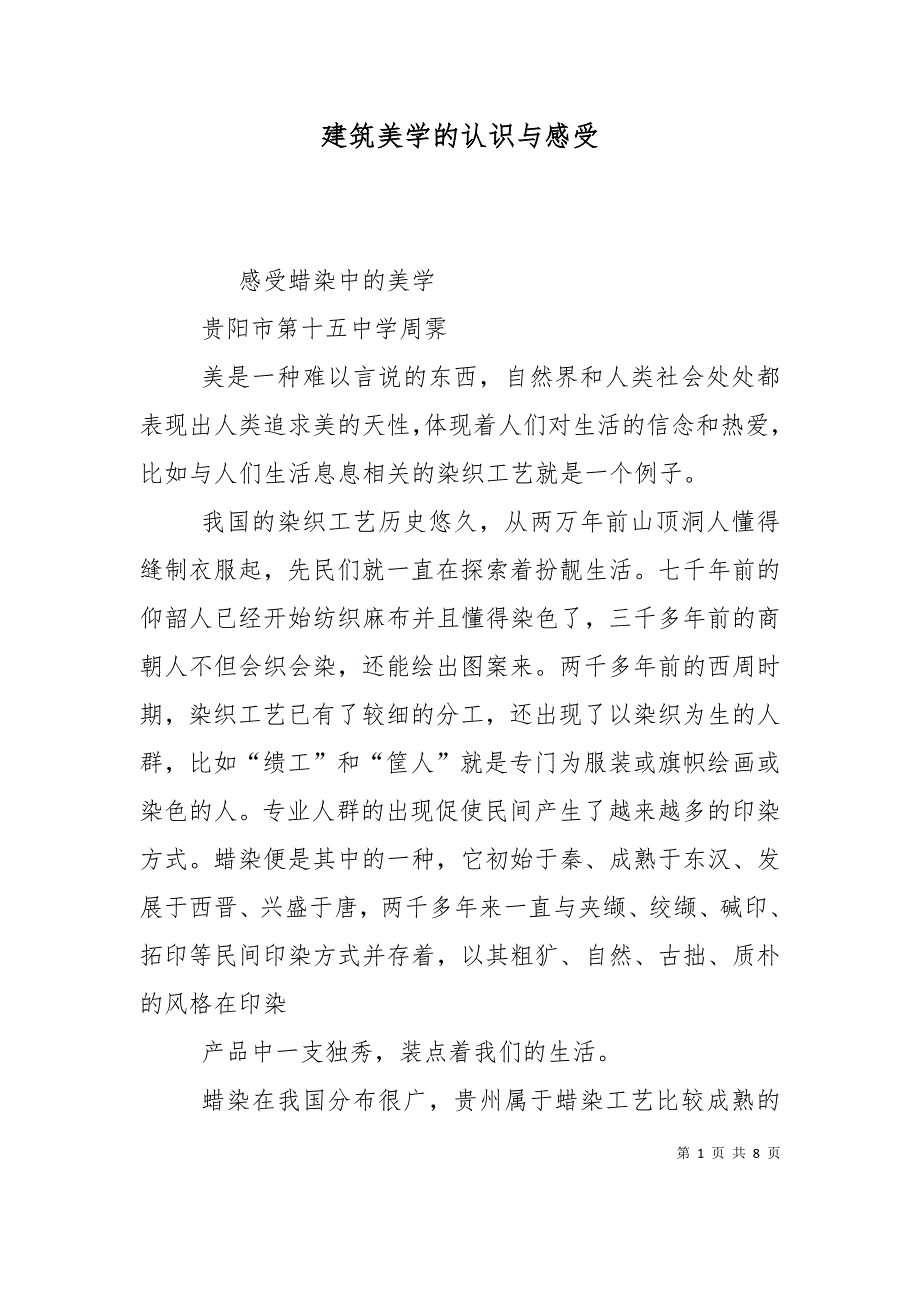 建筑美学的认识与感受
感受蜡染中的美学
贵阳市第十五中学周霁
美是一种难以言说的东西，自然界和人类社会处处都
表现出人类追求美的天性，体现着人们对生活的信念和热爱，
比如与人们生活息息相关的染织工艺就是一个例子。
我国的染织工艺历史悠久，从两万年前山顶洞人懂得
缝制衣服起，先民们就一直在探索着扮靓生活。七千年前的
仰韶人已经开始纺织麻布并且懂得染色了，三千多年前的商
朝人不但会织会染，还能绘出图案来。两千多年前的西周时
期，染织工艺已有了较细的分工，还出现了以染织为生的人
群，比如“缋工”和“筐人”就是专门为服装或旗帜绘画或
染色的人。专业人群的出现促使民间产生了越来越多的印染
方式。蜡染便是其中的一种，它初始于秦、成熟于东汉、发
展于西晋、兴盛于唐，两千多年来一直与夹缬、绞缬、碱印、
拓印等民间印染方式并存着，以其粗犷、自然、古拙、质朴
的风格在印染
产品中一支独秀，装点着我们的生活。
蜡染在我国分布很广，贵州属于蜡染工艺比较成熟的
第 1 页 共 8 页